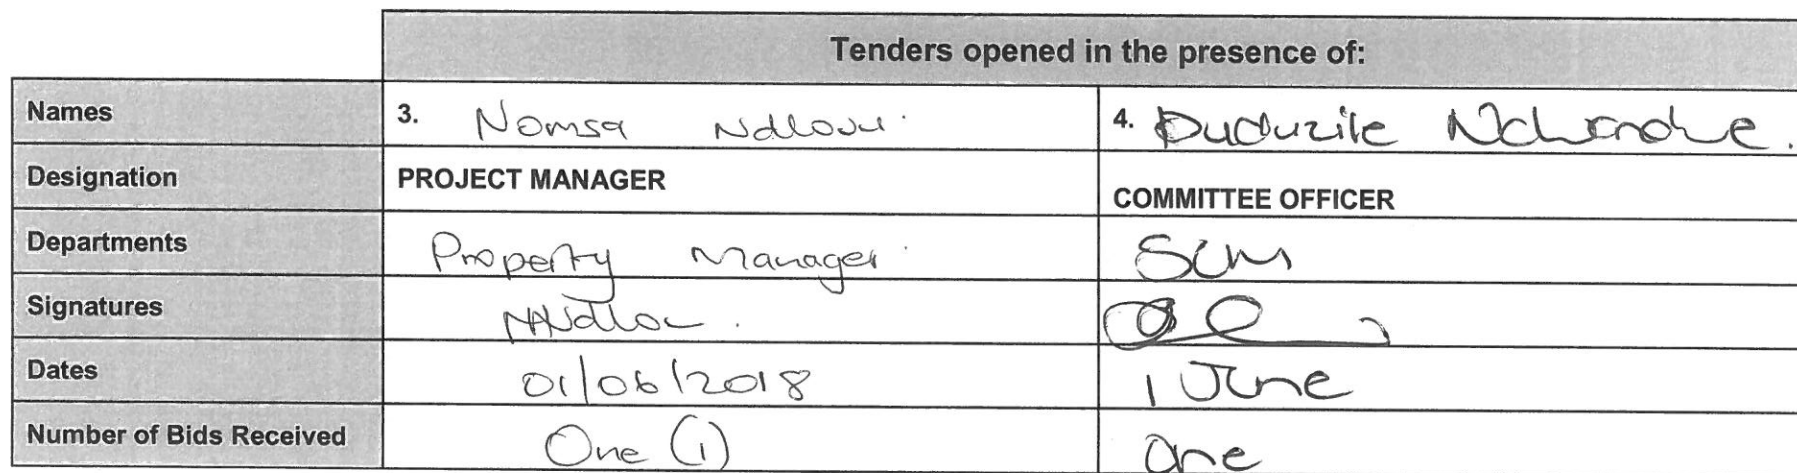 Tenders opened in the presence of:
Names 3. Nomsa Ndlovu 4. Duduzile
Designation PROJECT MANAGER COMMITTEE OFFICER
Departments Property Manager SCM
Signatures NNdlov
Dates 01/06/2018 1 June
Number of Bids Received One (1) One